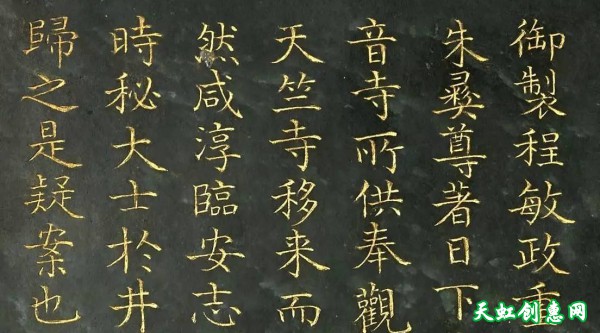 御製程敏政重
朱彝尊著日下
音寺所供奉觀
天竺寺移来而
然咸淳臨安志
時秘大士於井
歸之是疑案也
天虹创意网